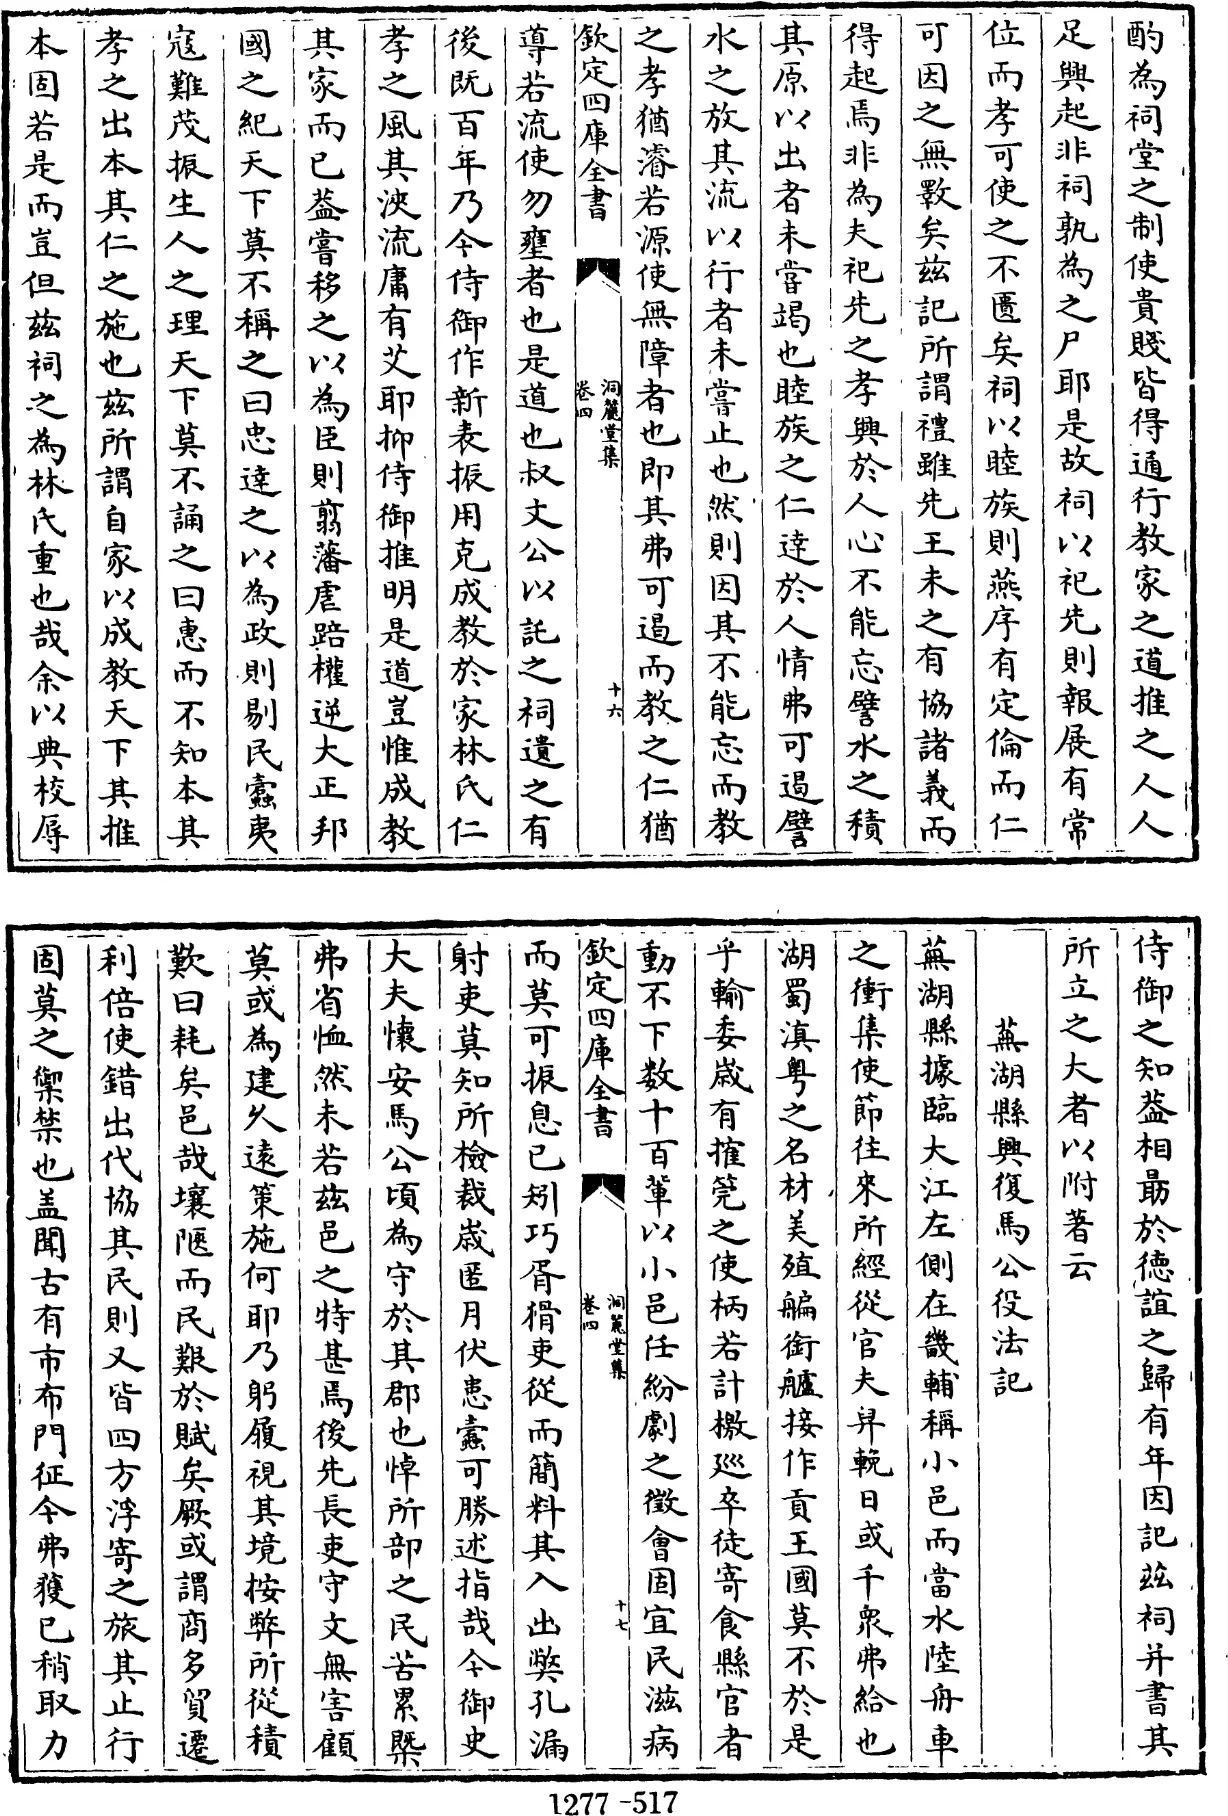 酌為祠堂之制使貴賤皆得通行教家之道推之人人
足興起非祠孰為之尸耶是故祠以祀先則報展有常
位而孝可使之不匱矣祠以睦族則燕序有定倫而仁
可因之無斁矣茲記所謂禮雖先王未之有協諸義而
得起焉非為夫祀先之孝興於人心不能忘譬水之積
其原以出者未嘗竭也睦族之仁達於人情弗可遏譬
水之放其流以行者未嘗止也然則因其不能忘而教
之孝猶濬若源使無障者也即其弗可遏而教之仁猶
欽定四庫全書
洞麓堂集
卷四
十六
導若流使勿壅者也是道也叔丈公以託之祠遺之有
後既百年乃今侍御作新表振用克成教於家林氏仁
孝之風其浹流庸有艾耶抑侍御推明是道豈惟成教
其家而已葢嘗移之以為臣則翦藩虐踣權逆大正邦
國之紀天下莫不稱之曰忠達之以為政則剔民蠹夷
寇難茂振生人之理天下莫不誦之曰惠而不知本其
孝之出本其仁之施也茲所謂自家以成教天下其推
本固若是而豈但茲祠之為林氏重也哉余以典校辱
侍御之知葢相勗於德誼之歸有年因記茲祠并書其
所立之大者以附著云
蕪湖縣興復馬公役法記
蕪湖縣據臨大江左側在畿輔稱小邑而當水陸舟車
之衝集使節往來所經從官夫舁輓日或千衆弗給也
湖蜀滇粤之名材美殖艑銜艫接作貢王國莫不於是
乎輸委歳有搉筦之使柄若計檄廵卒徒寄食縣官者
動不下数十百軰以小邑任紛劇之徵會固宜民滋病
欽定四庫全書
洞麓堂集
卷四
十七
而莫可振息已矧巧胥猾吏從而簡料其入出獘孔漏
射吏莫知所檢裁歳匿月伏患蠧可勝述指哉今御史
大夫懷安馬公頃為守於其郡也悼所部之民苦累槩
弗省恤然未若茲邑之特甚焉後先長吏守文無害顧
莫或為建久遠策施何耶乃躬履視其境按弊所從積
歎曰耗矣邑哉壤陿而民艱於賦矣厥或謂商多貿遷
利倍使錯出代協其民則又皆四方浮寄之旅其止行
固莫之禦禁也盖聞古有市布門征今弗獲已稍取力
1277-517